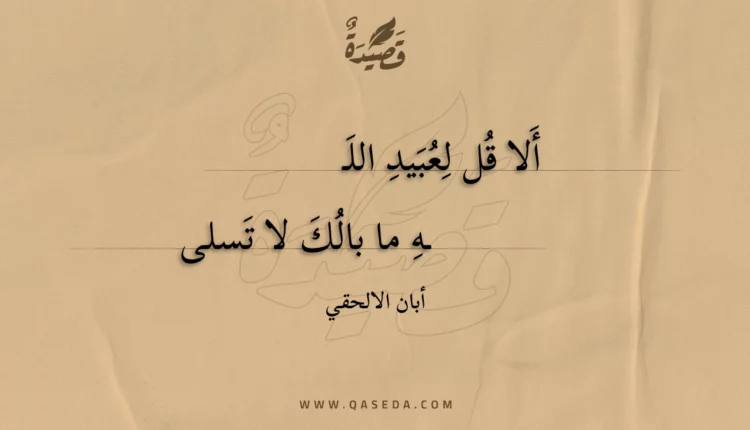 قَصِيدَةٌ
أَلا قُل لِعُبَيدِ اللَـ
ـهِ ما بالُكَ لا تَسلى
أبان الالحقي
WWW.QASEDA.COM